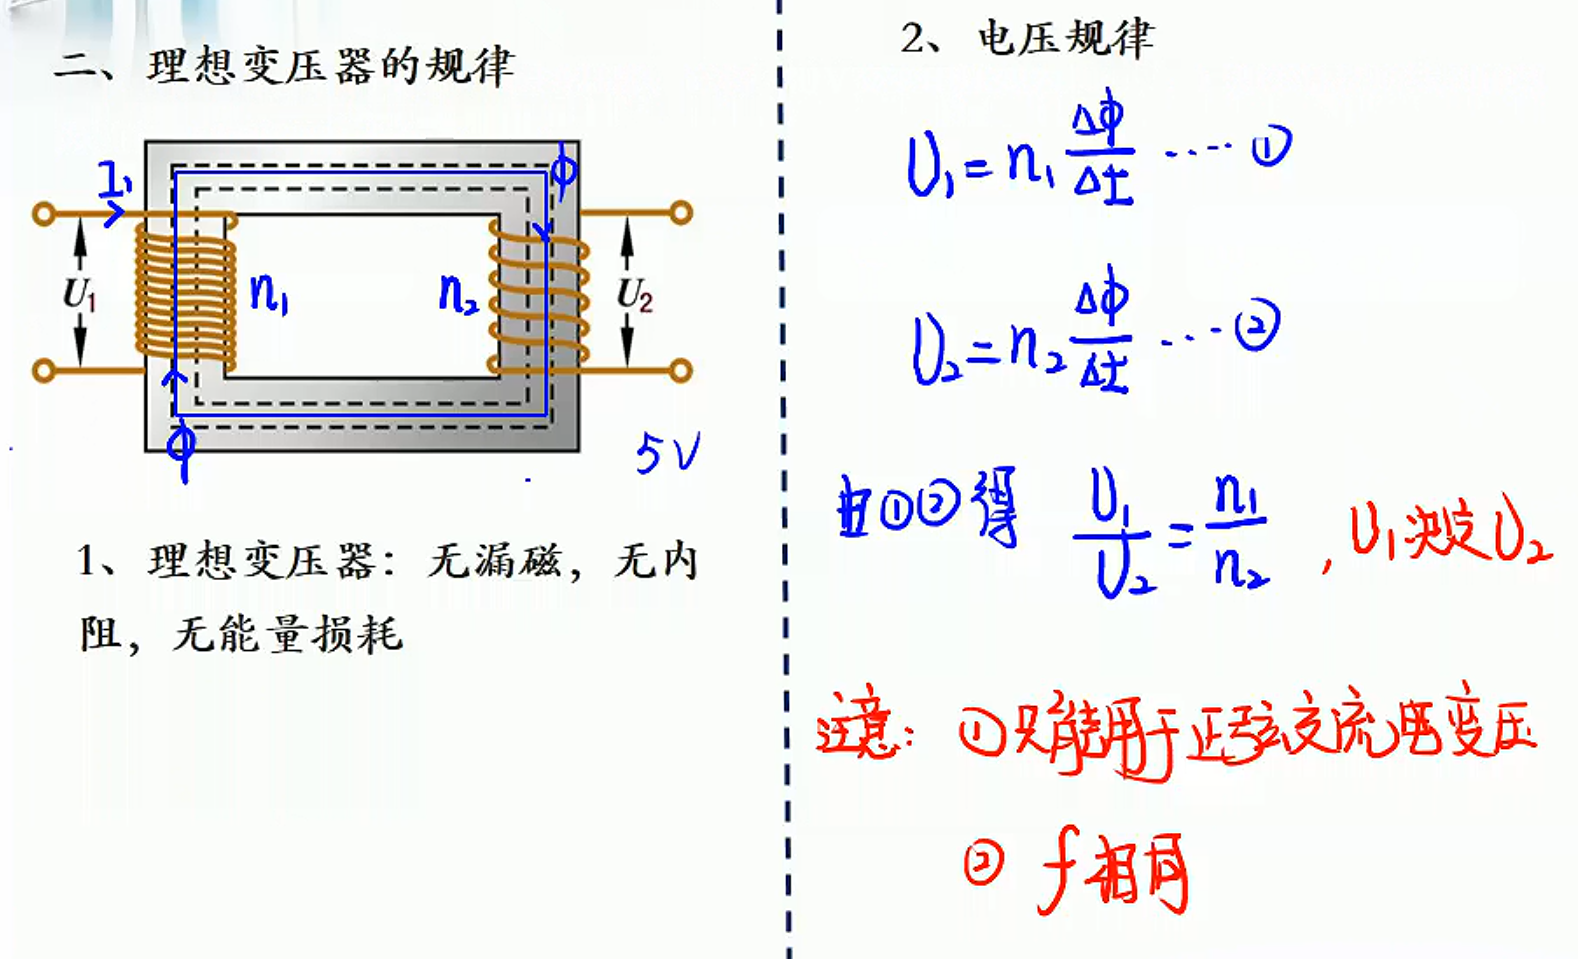 二、理想变压器的规律
I₁
ϕ
U₁
n₁
n₂
U₂
ϕ
5V
1、理想变压器：无漏磁，无内
阻，无能量损耗
2、电压规律
U₁=n₁ Δϕ/Δt ····①
U₂=n₂ Δϕ/Δt ···②
由①②得 U₁/U₂=n₁/n₂，U₁决定U₂
注意：①只能用于正弦交流电变压
② f相同